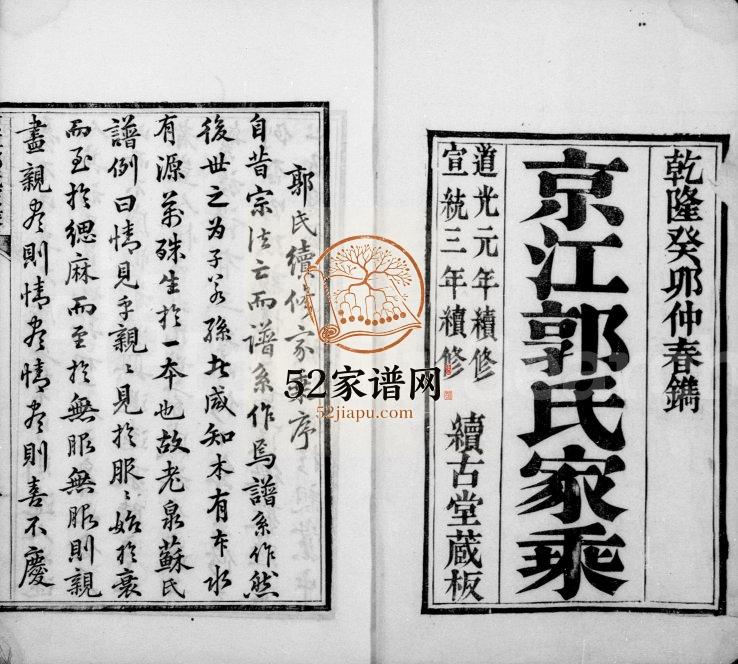 乾隆癸卯仲春鐫
京江郭氏家乘
道光元年續修
宣統三年續修
續古堂蔵板
郭氏續修家 序
自昔宗法亡而譜系作焉譜系作然
後世之为子若孫者咸知木有本水
有源萬殊生於一本也故老泉蘇氏
譜例曰情見乎親親見於服服始於衰
而至於緦麻而至於無服無服則親
盡親盡則情盡情盡則喜不慶
52家谱网
52jiapu.com